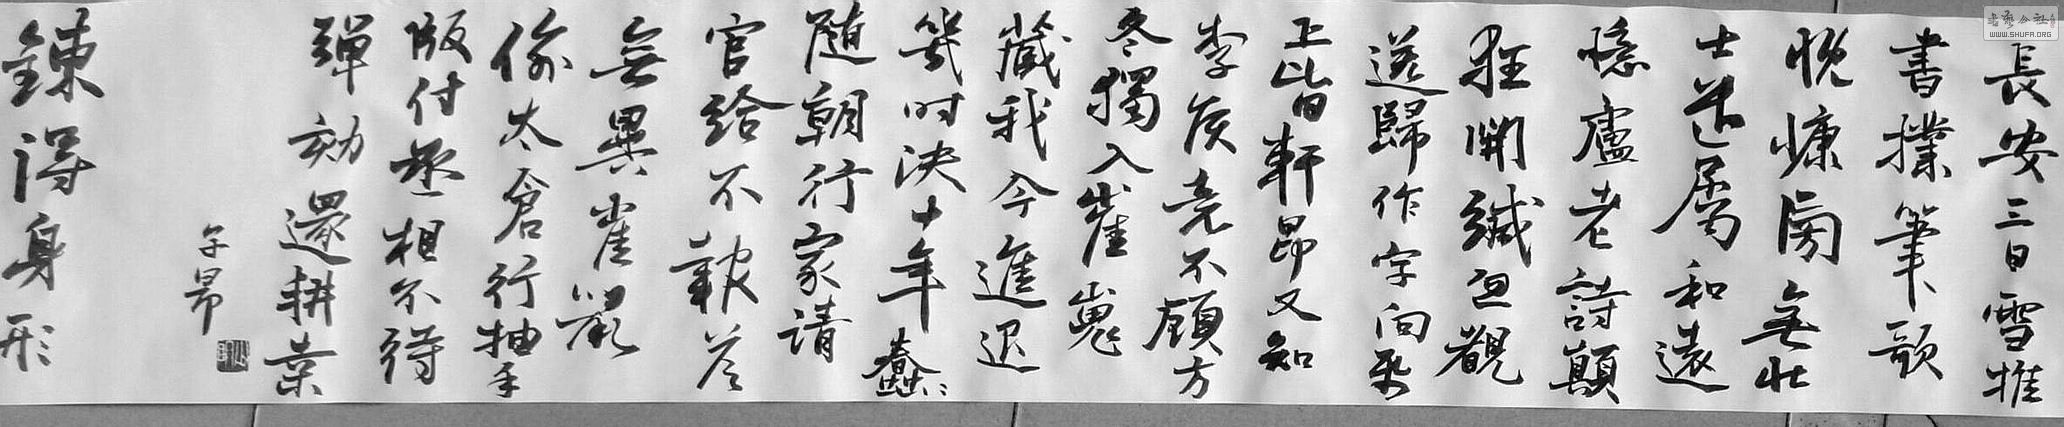 長安三日雪推
書撲筆歌
慨慷旁無壯
士遣屬和遠
憶盧老詩顛
狂開緘忽覩
送歸作字向紙
上皆軒昂又知
李侯竟不顧方
冬獨入崔嵬
藏我今進退
幾时決十年蠢〻
随朝行家請
官給不報答
無異雀鼠
偷太倉行抽手
版付丞相不待
彈劾還耕桑
鍊得身形
書藝公社
WWW.SHUFA.ORG